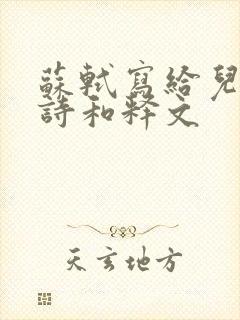 蘇軾寫給兒
詩和释文
天玄地方